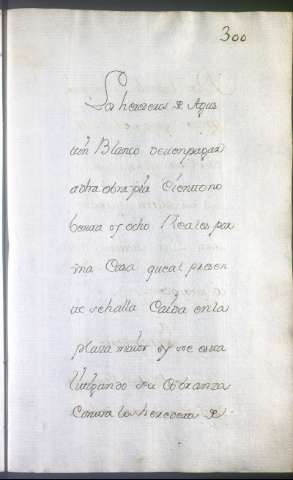 300
Los herederos de Agus
tin Blanco deuen pagar
a dha obra pia Ciento no
benta y ocho Reales por
vna Casa que al presen
te se halla Caida en la
plaza maior y se esta
litigando su Cobranza
Contra los herederos de